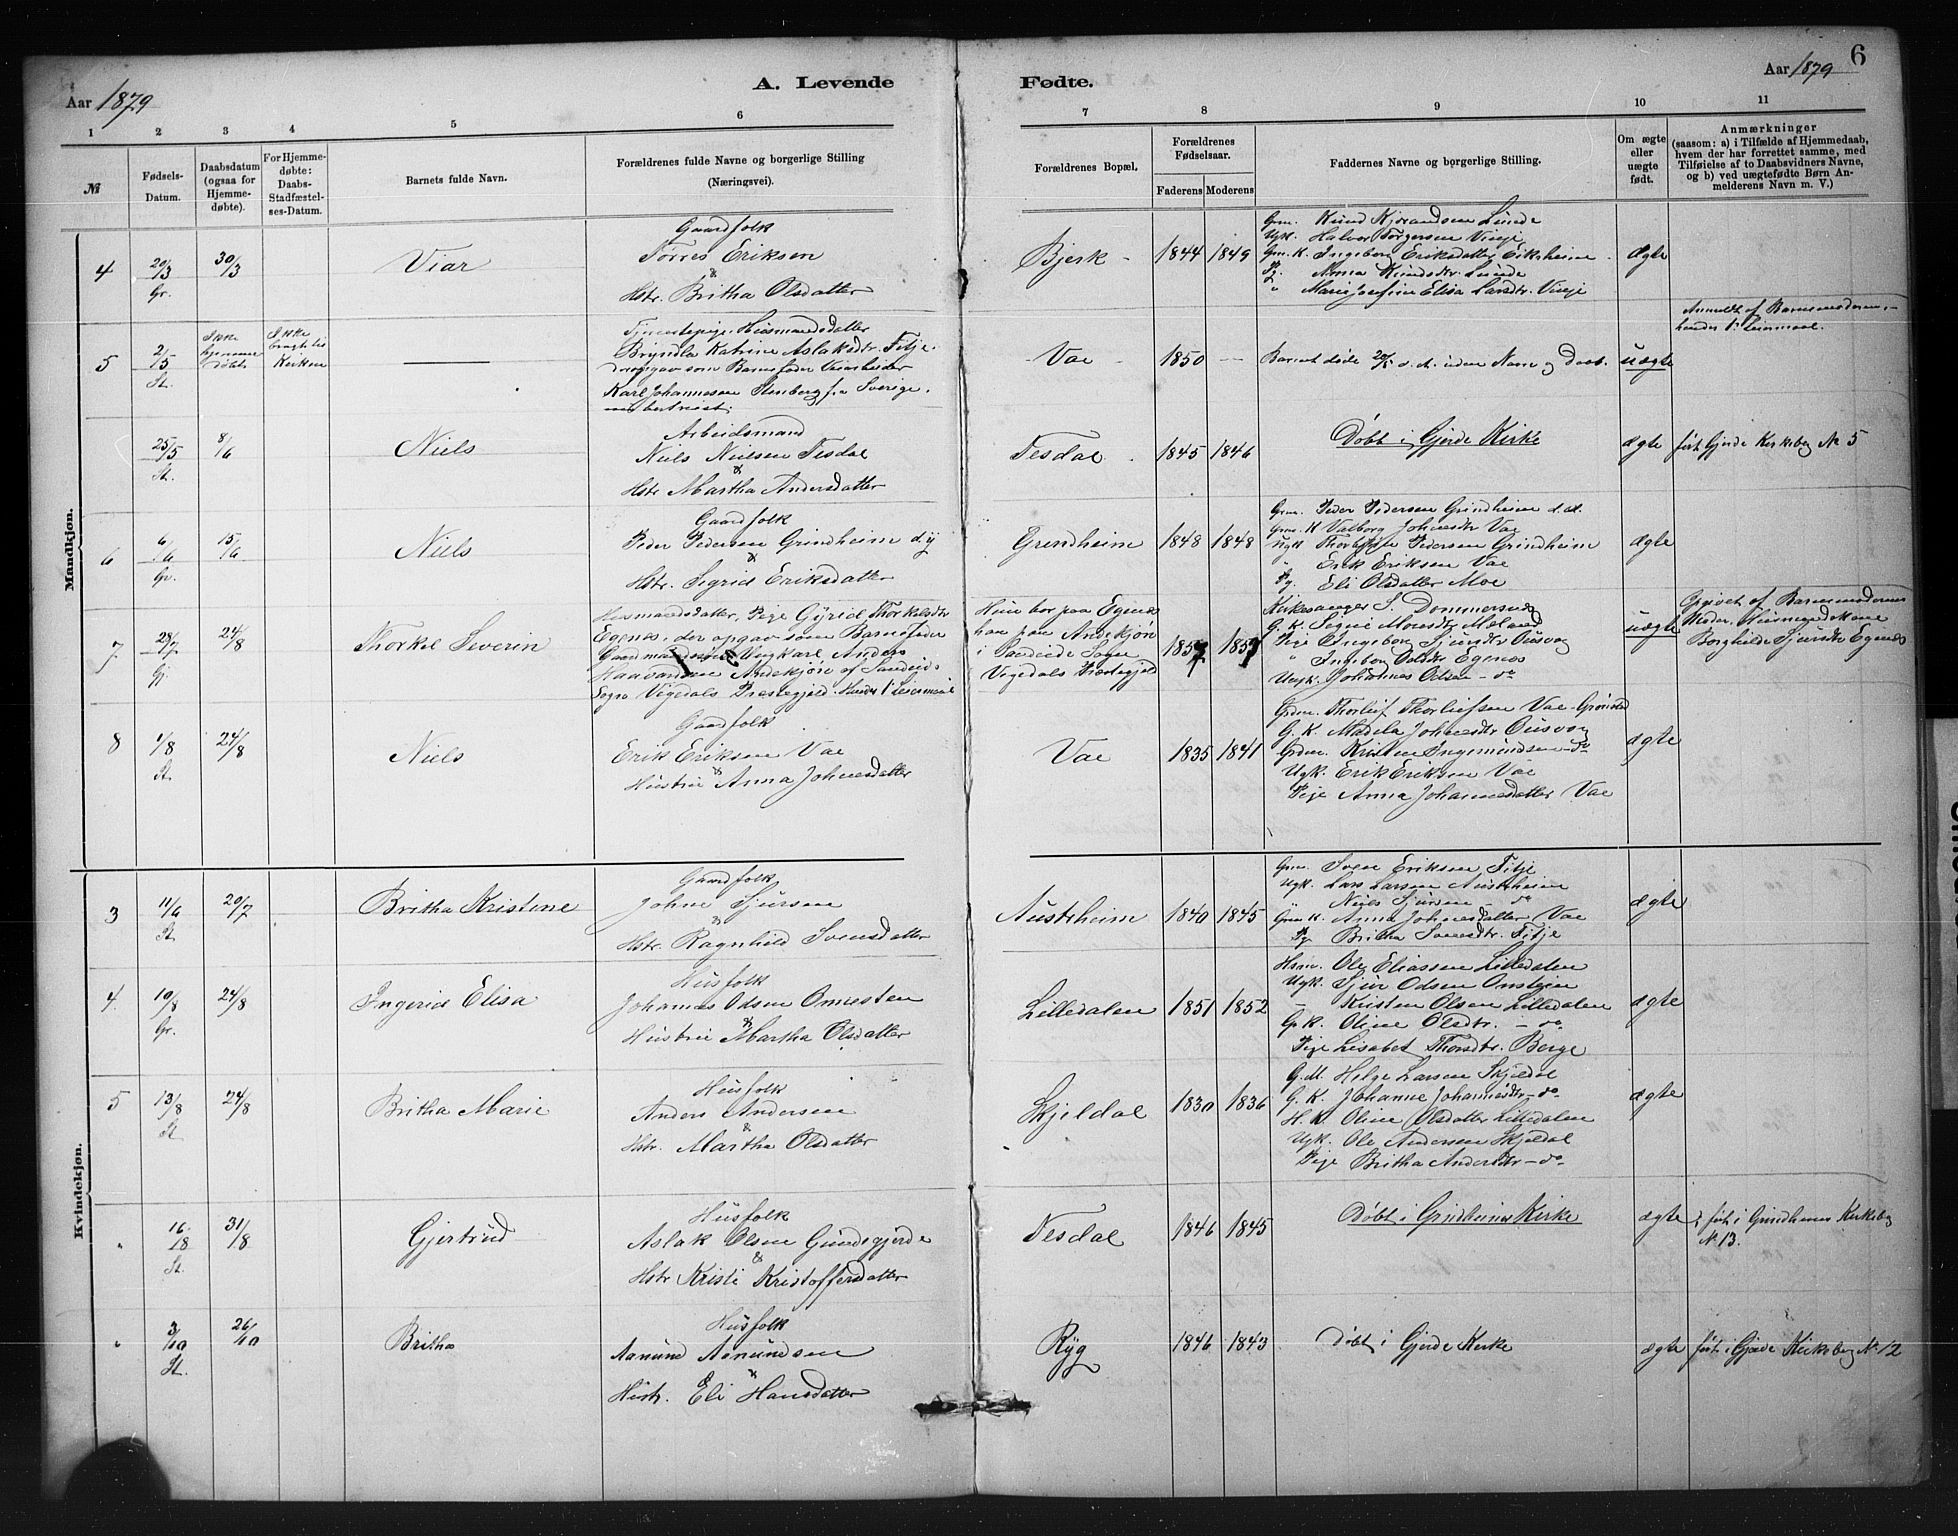 6
Aar 1879
A. Levende
Fødte.
Aar 1879
1 2 3 4 5 6 7 8 9 10 11
№
Fødsels-
Datum.
Daabsdatum
(ogsaa for
Hjemme-
døbte).
For Hjemme-
døbte:
Daabs-
Stadfæstel-
ses-Datum.
Barnets fulde Navn.
Forældrenes fulde Navne og borgerlige Stilling
(Næringsvei).
Forældrenes Bopæl.
Forældrenes
Fødselsaar.
Faderens Moderens
Faddernes Navne og borgerlige Stilling.
Om ægte
eller
uægte
født.
Anmærkninger
(saasom: a) i Tilfælde af Hjemmedaab,
hvem der har forrettet samme, med
Tilføielse af to Daabsvidners Navne,
og b) ved uægtefødte Børn An-
melderens Navn m. V.)
Mandkjøn.
4
20/3
Gr.
30/3
Viar
Gaardfolk
Torres Eriksen
&
Hstr. Britha Olsdatter
Bjerk
1844 1849
Grm. Knud Kjørandsen Lunde
Ugk. Halvor Torgersen Vinje
Gm. K. Ingeborg Eriksdatter Eriksheim
Pg. Anna Knudsdtr. Lunde
" Marie Josefine Elisa Larsdtr. Vinje
ægte
5
2/5
St.
Ikke
hjemme
døbt
Ikke
bragt til
Kirken
Tjenestepige, Husmandsdatter
Bryndla Katrine Aslaksdtr. Fitje.
der opgav som Barnefader Veiarbeider
Karl Johannesen Stenberg fra Sverige.
Vae
1850 —
Barnet døde 20/5 s. A. uden Navn og Daab.
uægte
Anmeldt af Barnemoderen,
hendes 1ste Leiermaal.
25/5
St.
8/6
Niels
Arbeidsmand
Niels Nielsen Tesdal
&
Hstr Martha Andersdatter
Tesdal
1845 1846
Døbt i Gjerde Kirke
ægte
ført Gjerde Kirkebog № 5
6
6/6
Gr.
15/6
Niels
Gaardfolk
Peder Pedersen Grindheim d.y
&
Hstr. Sigrid Eriksdatter
Grindheim
1848 1848
Grm. Peder Pedersen Grindheim d. æ.
Grm. K Valborg Johnesdtr Vae
Ugk Thorbjørn Pedersen Grindheim
" Erik Eriksen Vae
Pg. Eli Olsdatter Moe
ægte
7
28/7
Gj.
24/8
Thorkel Severin
Husmandsdatter, Pige Gÿrid Thorkelsdtr
Egenes, der opgav som Barnefader
Gaardmandssøn Ungkarl Anders
Haavardsen Andekjøn af Sandeids
Sogn Vigedals Præstegjeld. Hendes 1ste Leiermaal
Hun bor paa Egenes
han paa Andekjøn
i Sandeids Sogn
Vigedals Præstegjeld
1857 1857
Kirkesanger S. Dommersnes
G. K. Signe Monsdtr Mæland
Pige Ingeborg Sjursdtr Ousvog
" Ingeborg Olsdtr Egenes
Ungk. Johannes Olsen — do
uægte
Opgivet af Barnemoderens
Moder, Husmandskone
Borghilde Sjursdtr Egenes
8
1/8
St.
24/8
Niels
Gaardfolk
Erik Eriksen Vae
&
Hustru Anna Johnesdatter
Vae
1835 1841
Grdm. Thorleif Thorleifsen Vae - Grønstad
G. K. Madela Johnesdtr Ousvog
Grdm. Kristen Ingemundsen — do
Ugk. Erik Eriksen Vae
Pige Anna Johannesdatter Vae
ægte
Kvindekjøn.
3
11/6
St.
20/7
Britha Kristene
Gaardfolk
Johne Sjursen
&
Hstr. Ragnhild Svensdatter
Austrheim
1840 1845
Grm. Sven Eriksen Fitje
Ugk. Lars Larsen Austrheim
Niels Sjursen — do
Grm K. Anna Johnesdatter Vae
Pg. Britha Svensdtr. Fitje
ægte
4
10/8
Gr.
24/8
Ingerid Elisa
Husfolk
Johannes Odsen Omesten
&
Hustru Martha Olsdatter
Lilledalen
1851 1852
Hsm. Ole Eliassen Lilledalen
Ugk. Sjur Odsen Omsteen
— Kristen Olsen Lilledalen
G. K. Oline Olsdtr. — do
Pige Lisabet Thorsdtr. Berge
ægte
5
13/8
St
24/8
Britha Marie
Husfolk
Anders Andersen
&
Hstr. Martha Olsdatter
Skjeldal
1830 1836
G.M. Helge Larsen Skjeldal
G. K. Johanne Johannesdtr — do
H. K. Oline Olsdatter Lilledalen
Ugk. Ole Andersen Skjeldal
Pige Britha Andersdtr — do
ægte
"
16/8
St.
31/8
Gjertrud
Husfolk
Aslak Olsen Gundegjerde
&
Hstr Kristi Kristoffersdatter
Tesdal
1846 1845
Døbt i Grindheims Kirke
ægte
ført i Grindheims Kirkebog
№ 13.
"
3/10
St.
26/10
Britha
Husfolk
Aanund Aanundsen
&
Hustr. Eli Hansdatter
Ryg
1846 1843
Døbt i Gjerde Kirke
ægte
ført i Gjerde Kirkebog № 12